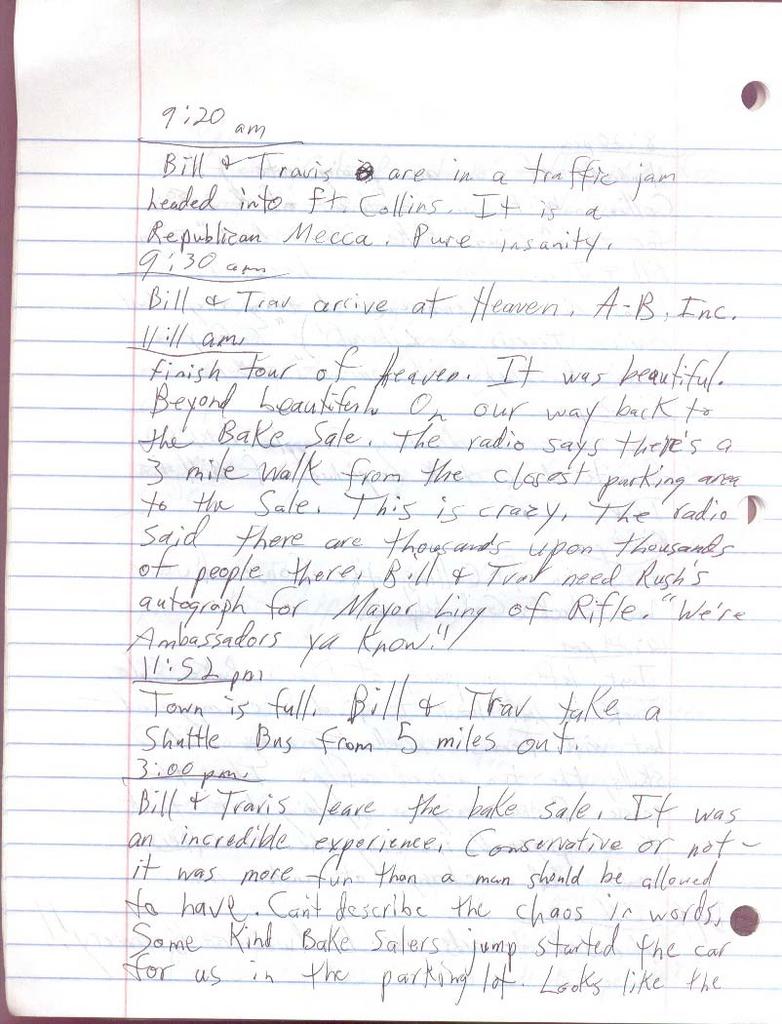 9:20 am
Bill & Travis are in a traffic jam
headed into Ft. Collins. It is a
Republican Mecca. Pure insanity.
9:30 am
Bill & Trav arrive at Heaven. A-B, Inc.
11:11 am.
Finish tour of Heaven. It was beautiful.
Beyond beautiful. On our way back to
the Bake Sale. The radio says there's a
3 mile walk from the closest parking area
to the Sale. This is crazy. The radio
said there are thousands upon thousands
of people there. Bill & Trav need Rush's
autograph for Mayor Ling of Rifle. "We're
Ambassadors ya know!"
11:52 pm
Town is full. Bill & Trav take a
Shuttle Bus from 5 miles out.
3:00 pm.
Bill & Travis leave the bake sale. It was
an incredible experience. Conservative or not -
it was more fun than a man should be allowed
to have. Can't describe the chaos in words.
Some Kind Bake Salers jump started the car
for us in the parking lot. Looks like the